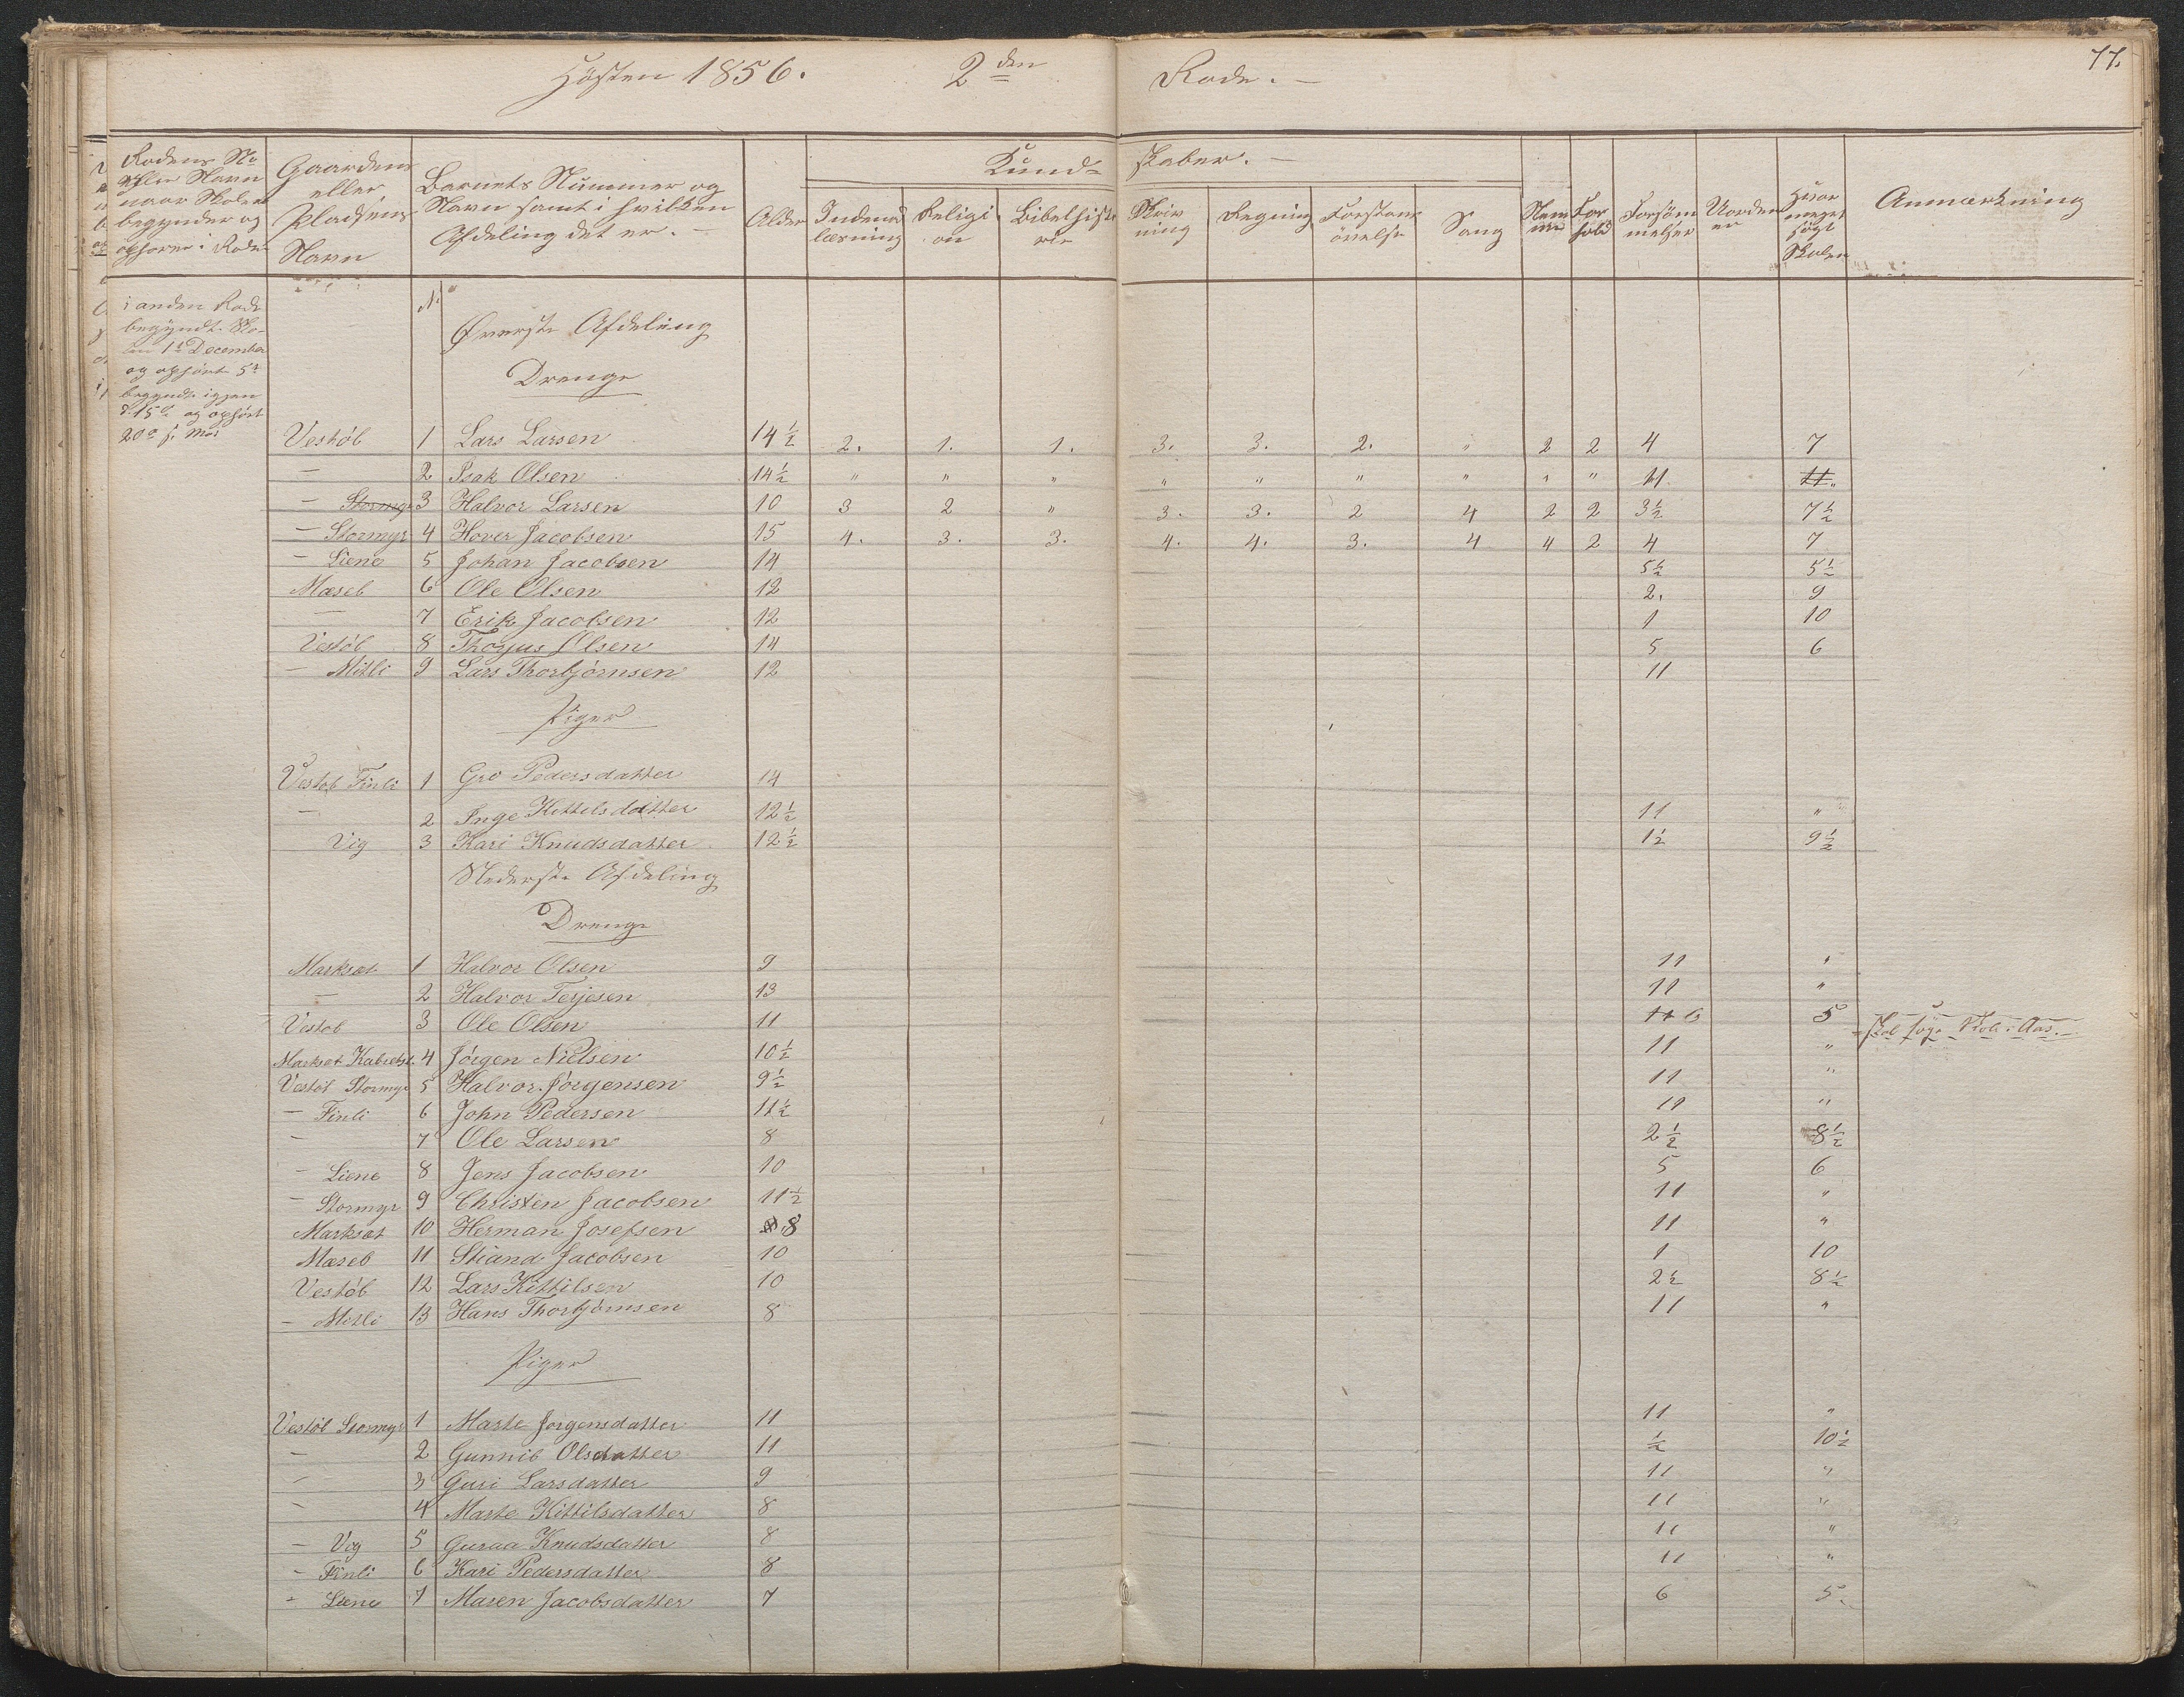 Høsten 1856. 2den Rode. 77.
Rodens No eller Navn naar Skolen begynder og ophører i Roden
Gaardens eller Pladsens Navn
Barnets Nummer og Navn samt i hvilken Afdeling det er.
Alder
Kundskaber.
Indenadlæsning
Religion
Bibelhistorie
Skrivning
Regning
Forstandsøvelse
Sang
Nemme
Forhold
Forsømmelser
Uordener
Hvor meget søgt Skolen
Anmærkning
i anden Rode
begyndt Sko-
len 1ste December
og ophørt 5te
begyndt igjen
d. 15de og ophørt
20de s. M.
No
Øverste Afdeling
Drenge
Vestøl 1 Lars Larsen 14½ 2. 1. 1. 3. 3. 2. " 2 2 4 7
— 2 Isak Olsen 14½ " " " " " " " " " 11 11 "
— Stormyr 3 Halvor Larsen 10 3 2 " 3. 3. 2 4 2 2 3½ 7½
— Stormyr 4 Hover Jacobsen 15 4. 3. 3. 4. 4. 3. 4 4 2 4 7
— Liene 5 Johan Jacobsen 14 5½ 5½
Mæsel 6 Ole Olsen 12 2. 9
— 7 Erik Jacobsen 12 1 10
Vestøl 8 Thorjus Olsen 14 5 6
— Mitli 9 Lars Thorbjørnsen 12 11
Piger
Vestøl Finli 1 Gro Pedersdatter 14
— 2 Inge Kittelsdatter 12½ 11 "
Vig 3 Kari Knudsdatter 12½ 1½ 9½
Nederste Afdeling
Drenge
Marksæt 1 Halvor Olsen 9 11 "
— 2 Halvor Terjesen 13 11 "
Vestøl 3 Ole Olsen 11 11 6 5
Marksæt 4 Jørgen Nielsen 10½ 11 "
Vestøl Stormyr 5 Halvor Jørgensen 9½ 11 "
— Finli 6 John Pedersen 11½ 11 "
— 7 Ole Larsen 8 2½ 8½
— Liene 8 Jens Jacobsen 10 5 6
— Stormyr 9 Christen Jacobsen 11½ 11 "
Marksæt 10 Herman Josefsen 8 11 "
Mæsel 11 Stiand Jacobsen 10 1 10
Vestøl 12 Lars Kittilsen 10 2½ 8½
— Mitli 13 Hans Thorbjørnsen 8 11 "
Piger
Vestøl Stormyr 1 Marte Jørgensdatter 11 11 "
— 2 Gunnil Olsdatter 11 ½ 10½
— 3 Guri Larsdatter 9 11 "
— 4 Marte Kittilsdatter 8 11 "
— Vig 5 Guraa Knudsdatter 8 11 "
— Finli 6 Kari Pedersdatter 8 11 "
— Liene 7 Maren Jacobsdatter 7 6 5.